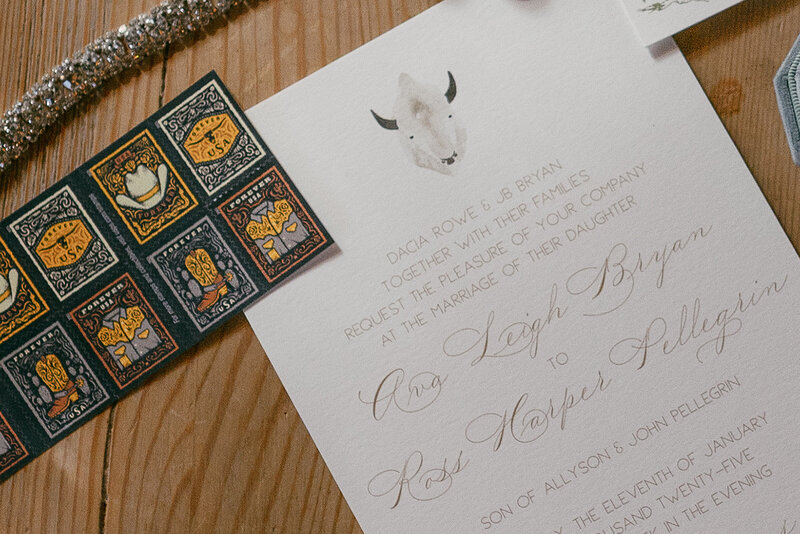 FOREVER
USA
FOREVER
USA
FOREVER
USA
FOREVER
USA
FOREVER
USA
FOREVER
USA
DACIA ROWE & JB BRYAN
TOGETHER WITH THEIR FAMILIES
REQUEST THE PLEASURE OF YOUR COMPANY
AT THE MARRIAGE OF THEIR DAUGHTER
Ava Leigh Bryan
TO
Ross Harper Pellegrin
SON OF ALLYSON & JOHN PELLEGRIN
THE ELEVENTH OF JANUARY
TWENTY-FIVE
IN THE EVENING